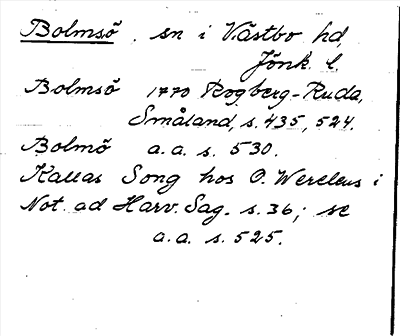 Bolmsö. sn i Västbo hd,
Jönk. l.
Bolmsö 1770 Rogberg-Ruda,
Småland, s. 435, 524.
Bolmö a.a. s. 530.
Kallas Song hos O. Werelius i
Not. ad Harv. Sag. s. 36; se
a.a. s. 525.